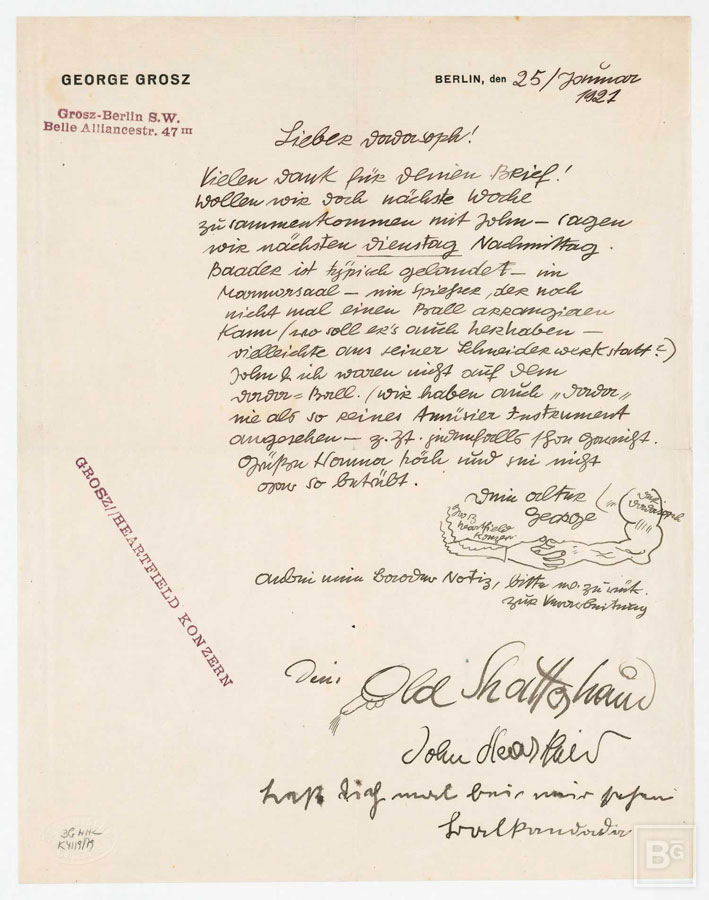 GEORGE GROSZ
BERLIN, den 25/Januar
1921
Grosz-Berlin S.W.
Belle Alliancestr. 47 III
Lieber dadasoph!
Vielen dank für deinen Brief!
wollen wir doch nächste Woche
zusammenkommen mit John – sagen
wir nächsten dienstag Nachmittag.
Baader ist typisch gelandet – im
Marmorsaal – ein Spiesser, der noch
nicht mal einen Ball arrangieren
kann (wo soll er's auch herhaben –
vielleicht aus seiner Schneiderwerkstatt?)
John & ich waren nicht auf dem
dada=Ball. (wir haben auch „dada"
nie als so reines Amüsier Instrument
angesehen – z.Zt. jedenfalls schon garnicht.
Grüße Hanna höch und sei nicht
gar so betrübt.
dein alter
George
der
dadasoph
Grosz
heartfield
konzern
GROSZ//HEARTFIELD KONZERN
anbei eine Notiz, bitte zurück.
zur Verarbeitung
Dein
Old Shatterhand
John Heartfield
Laß dich mal bei mir sehen
BG HHC
K 4119/79
BG